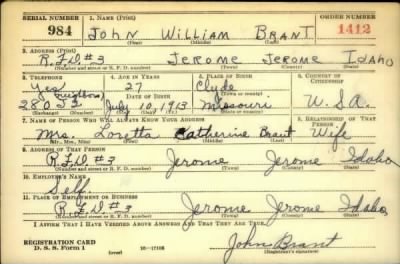 SERIAL NUMBER 1. NAME (Print) ORDER NUMBER
984 JOHN WILLIAM BRANT 1412
(First) (Middle) (Last)
2. ADDRESS (Print)
R.F.D. #3 JEROME JEROME IDAHO
(Number and street or R. F. D. number) (Town) (County) (State)
3. TELEPHONE 4. AGE IN YEARS 5. PLACE OF BIRTH 6. COUNTRY OF CITIZENSHIP
Yes 27 Clyde
DATE OF BIRTH
280J2 July 10, 1913 Missouri U.S.A.
7. NAME OF PERSON WHO WILL ALWAYS KNOW YOUR ADDRESS 8. RELATIONSHIP OF THAT PERSON
Mrs. Loretta Catherine Brant Wife
(Mr., Mrs., Miss) (First) (Middle) (Last)
9. ADDRESS OF THAT PERSON
R.F.D. #3 Jerome Jerome Idaho
(Number and street or R. F. D. number) (Town) (County) (State)
10. EMPLOYER'S NAME
Self.
11. PLACE OF EMPLOYMENT OR BUSINESS
R.F.D. #3 Jerome Jerome Idaho
(Number and street or R. F. D. number) (Town) (County) (State)
I AFFIRM THAT I HAVE VERIFIED ABOVE ANSWERS AND THAT THEY ARE TRUE.
REGISTRATION CARD
D. S. S. Form 1 (over) 16—17105 John Brant
(Registrant's signature)